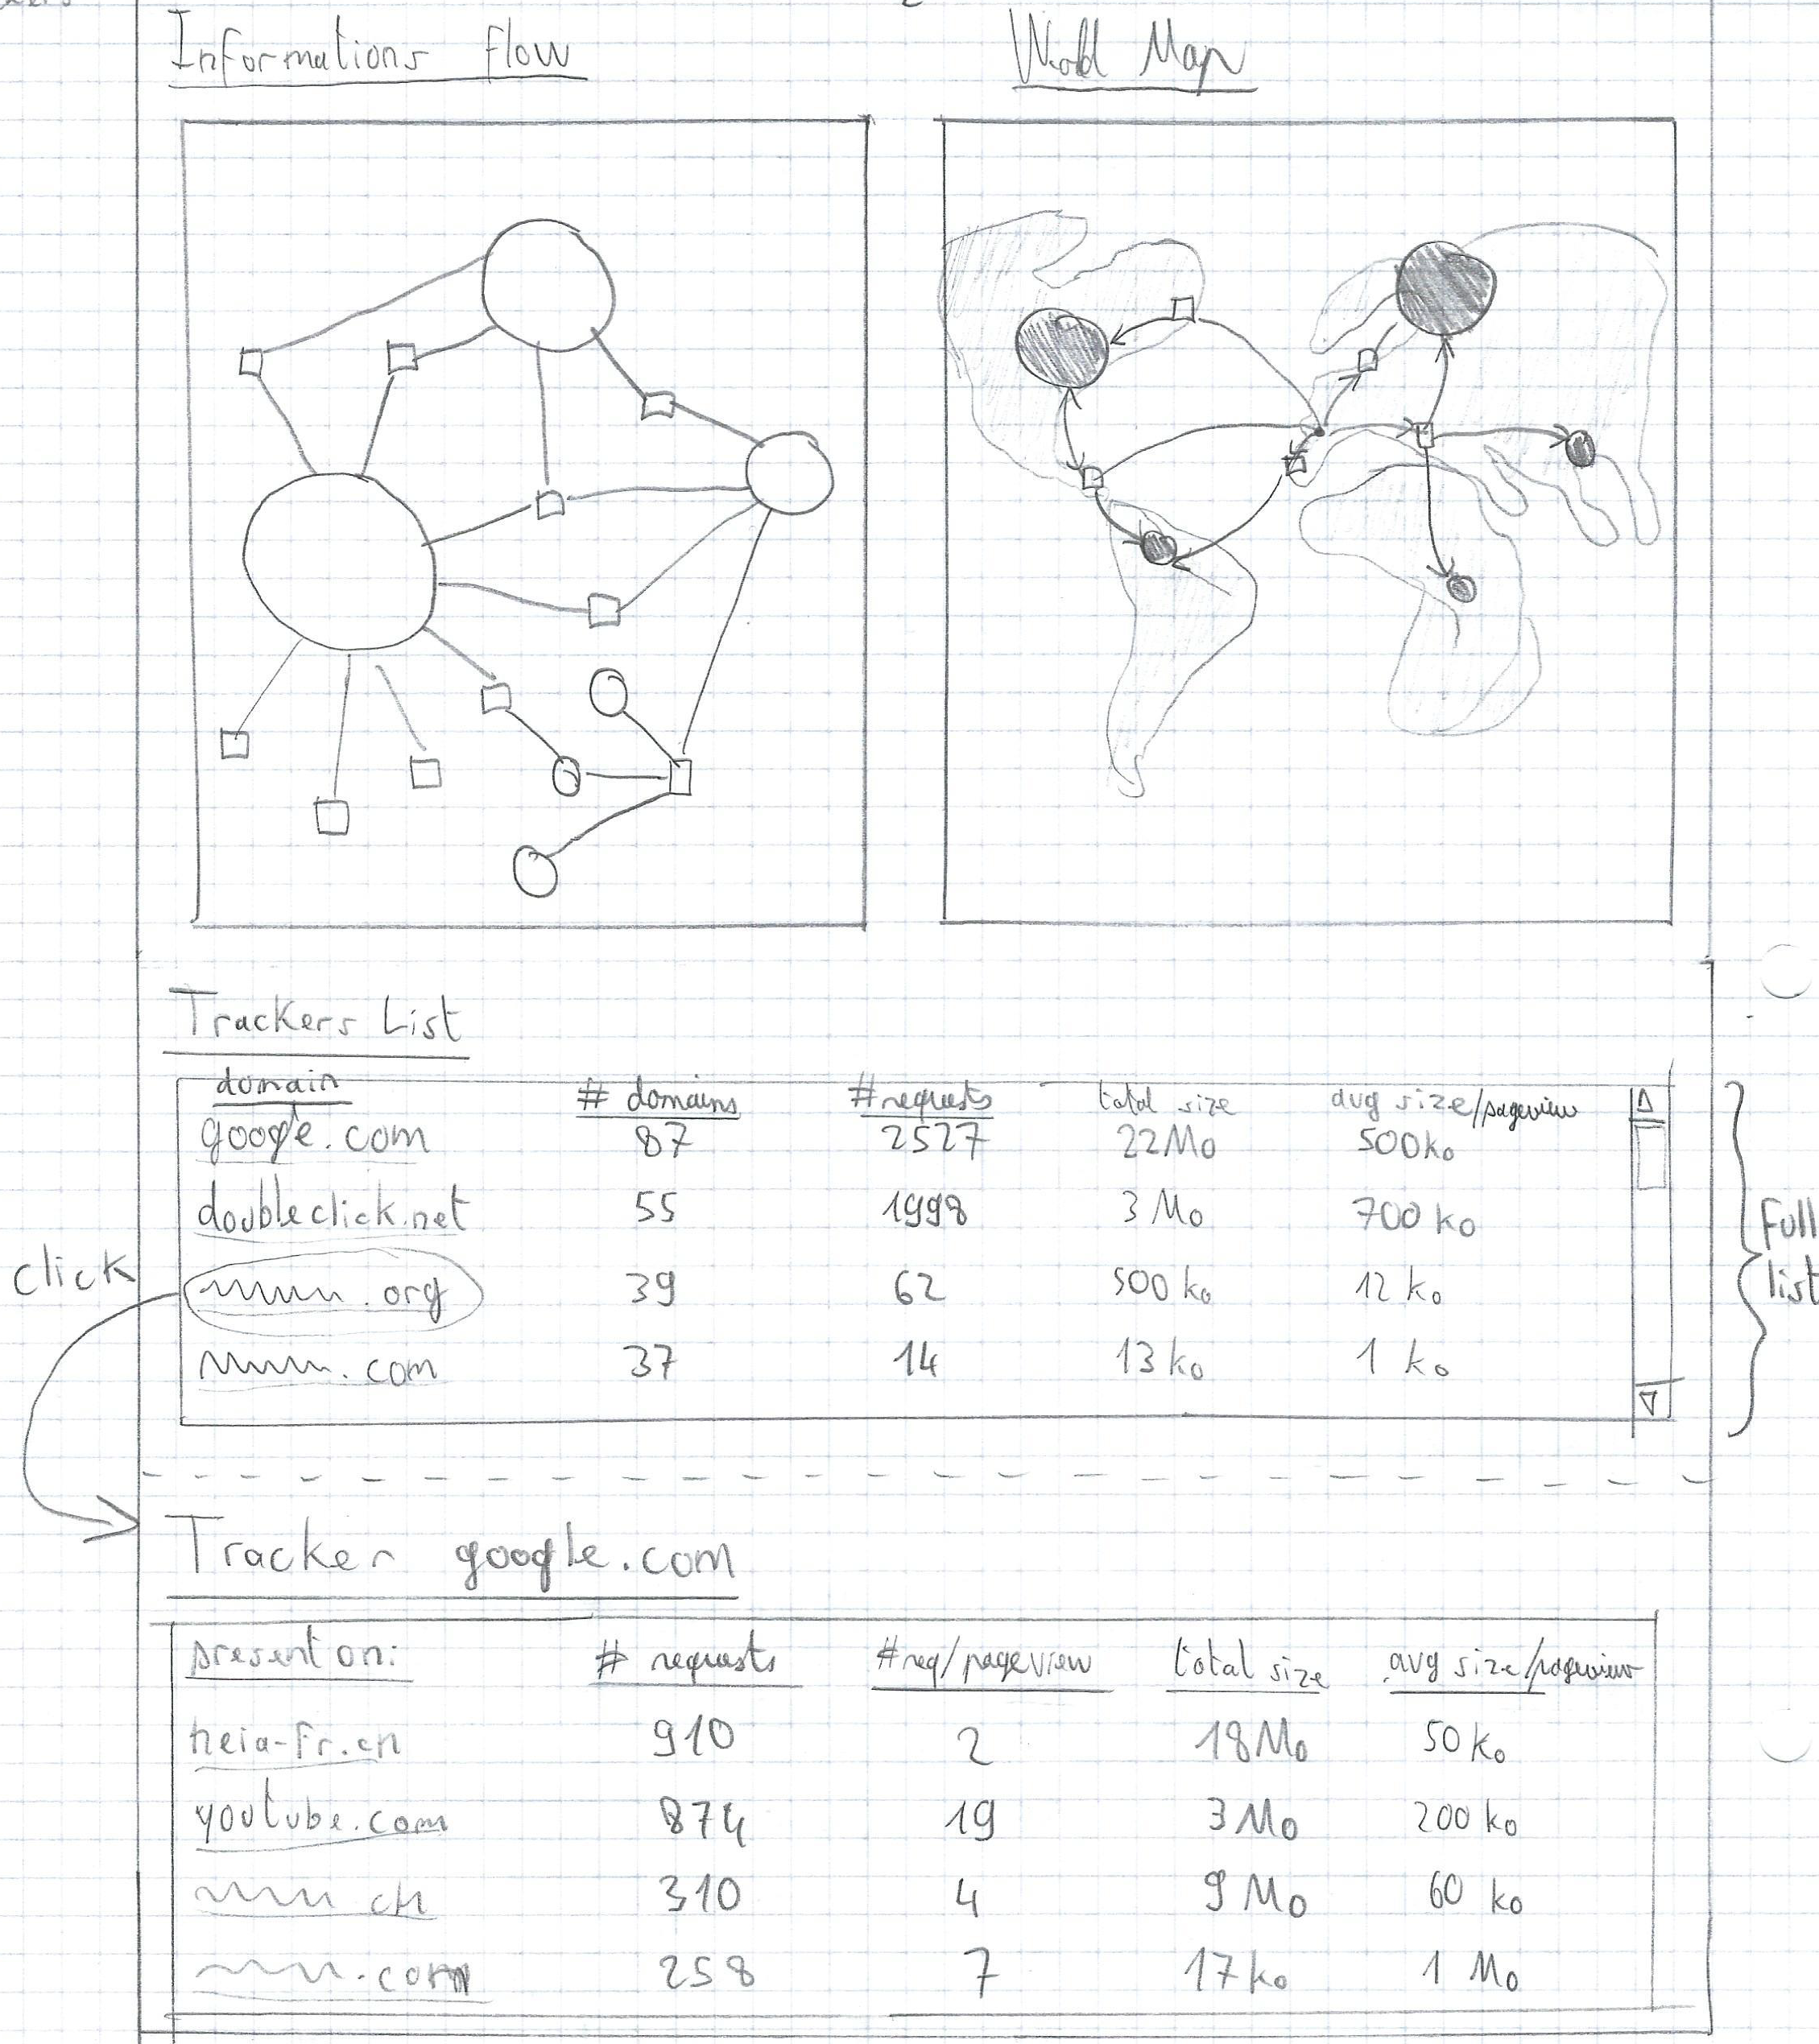 Informations flow
World Map
Trackers List
domain # domains #requests total size avg size/pageview
google.com 87 2527 22Mo 500ko
doubleclick.net 55 1998 3 Mo 700 ko
click
.org 39 62 500 ko 12 ko
.com 37 14 13 ko 1 ko
Full
list
Tracker google.com
present on: # requests #req/pageview total size avg size/pageview
heia-fr.ch 910 2 18 Mo 50 ko
youtube.com 874 19 3 Mo 200 ko
ch 310 4 9 Mo 60 ko
.com 258 7 17 ko 1 Mo